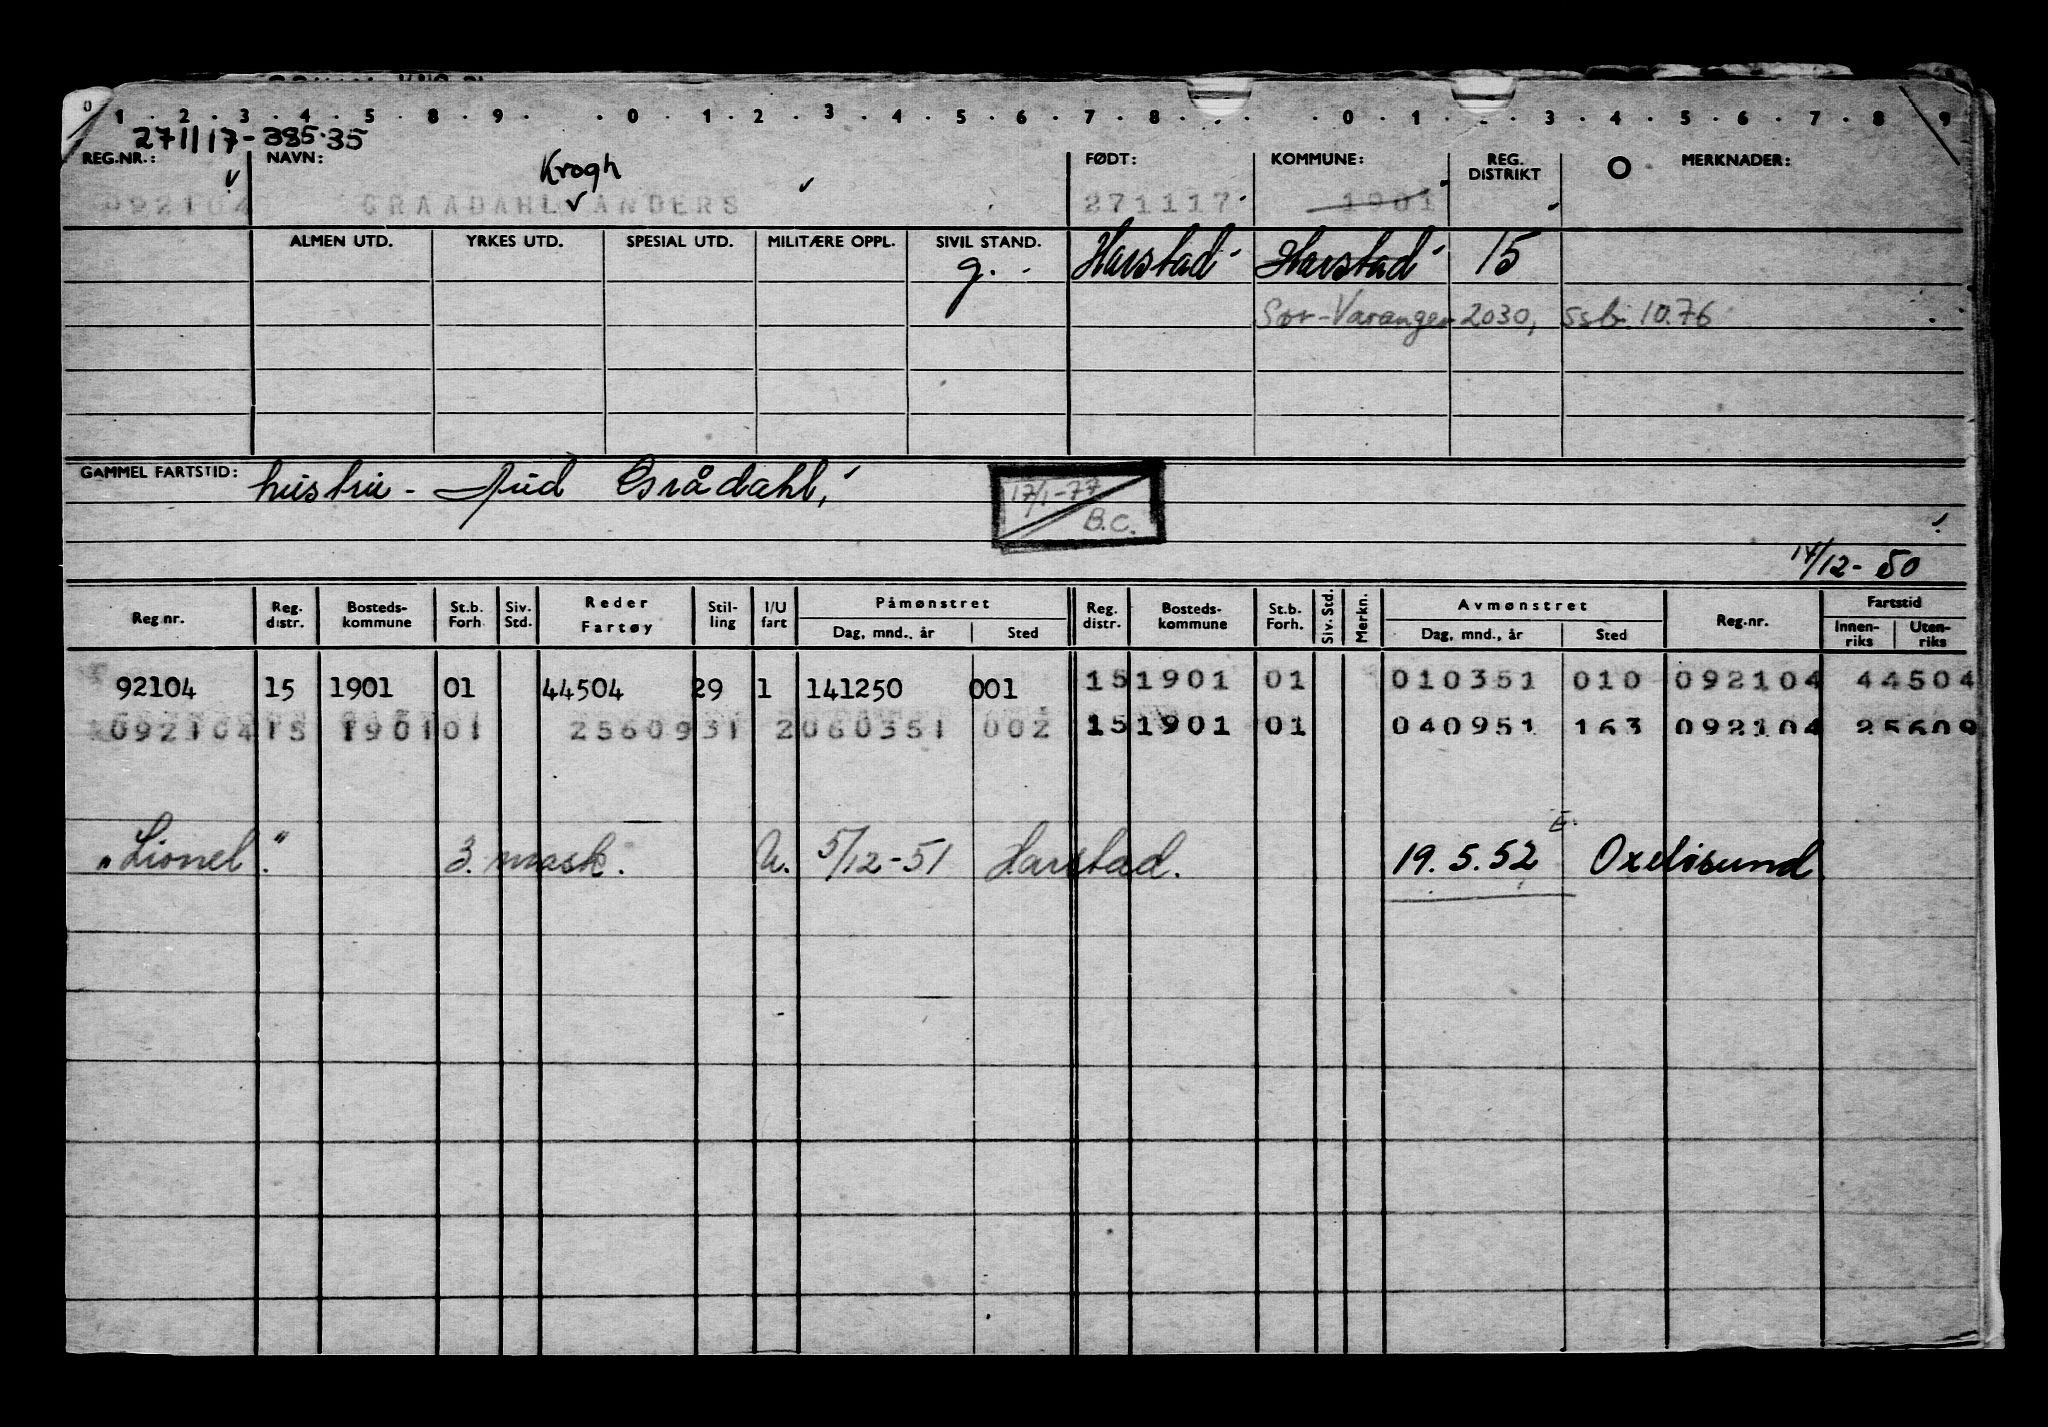 0 1 . 2 . 3 . 4 . 5 . 8 . 9 . . 0 . 1 . 2 . 3 . 4 . 5 . 6 . 7 . 8 . . . . 0 . 1 . . 3 . 4 . 5 . 6 . 7 . 8 . 9
271117-395.35
REG.NR.: NAVN: FØDT: KOMMUNE: REG. DISTRIKT MERKNADER:
Krogh
092104 GRAADAHL ANDERS 271117 1901
ALMEN UTD. YRKES UTD. SPESIAL UTD. MILITÆRE OPPL. SIVIL STAND.
g. Harstad Harstad 15
Sør-Varanger 2030, Ssb. 10.76
GAMMEL FARTSTID: hustru - Aud Grådahl,
17/1-77
B.C.
14/12-50
Reg.nr. Reg. distr. Bosteds- kommune St.b. Forh Siv. Std. Reder Fartøy Stil- ling I/U fart Påmønstret Reg. distr. Bosteds- kommune St.b. Forh. Siv. Std. Merkn. Avmønstret Reg.nr. Fartstid
Dag, mnd., år Sted Dag, mnd., år Sted Innen- riks Uten- riks
92104 15 1901 01 44504 29 1 141250 001 15 1901 01 010351 010 092104 44504
092104 15 1901 01 25609 31 2 060351 002 15 1901 01 040951 163 092104 25609
"Lionel". 3. mask. U. 5/12-51 Harstad. 19.5.52 Oxeløsund